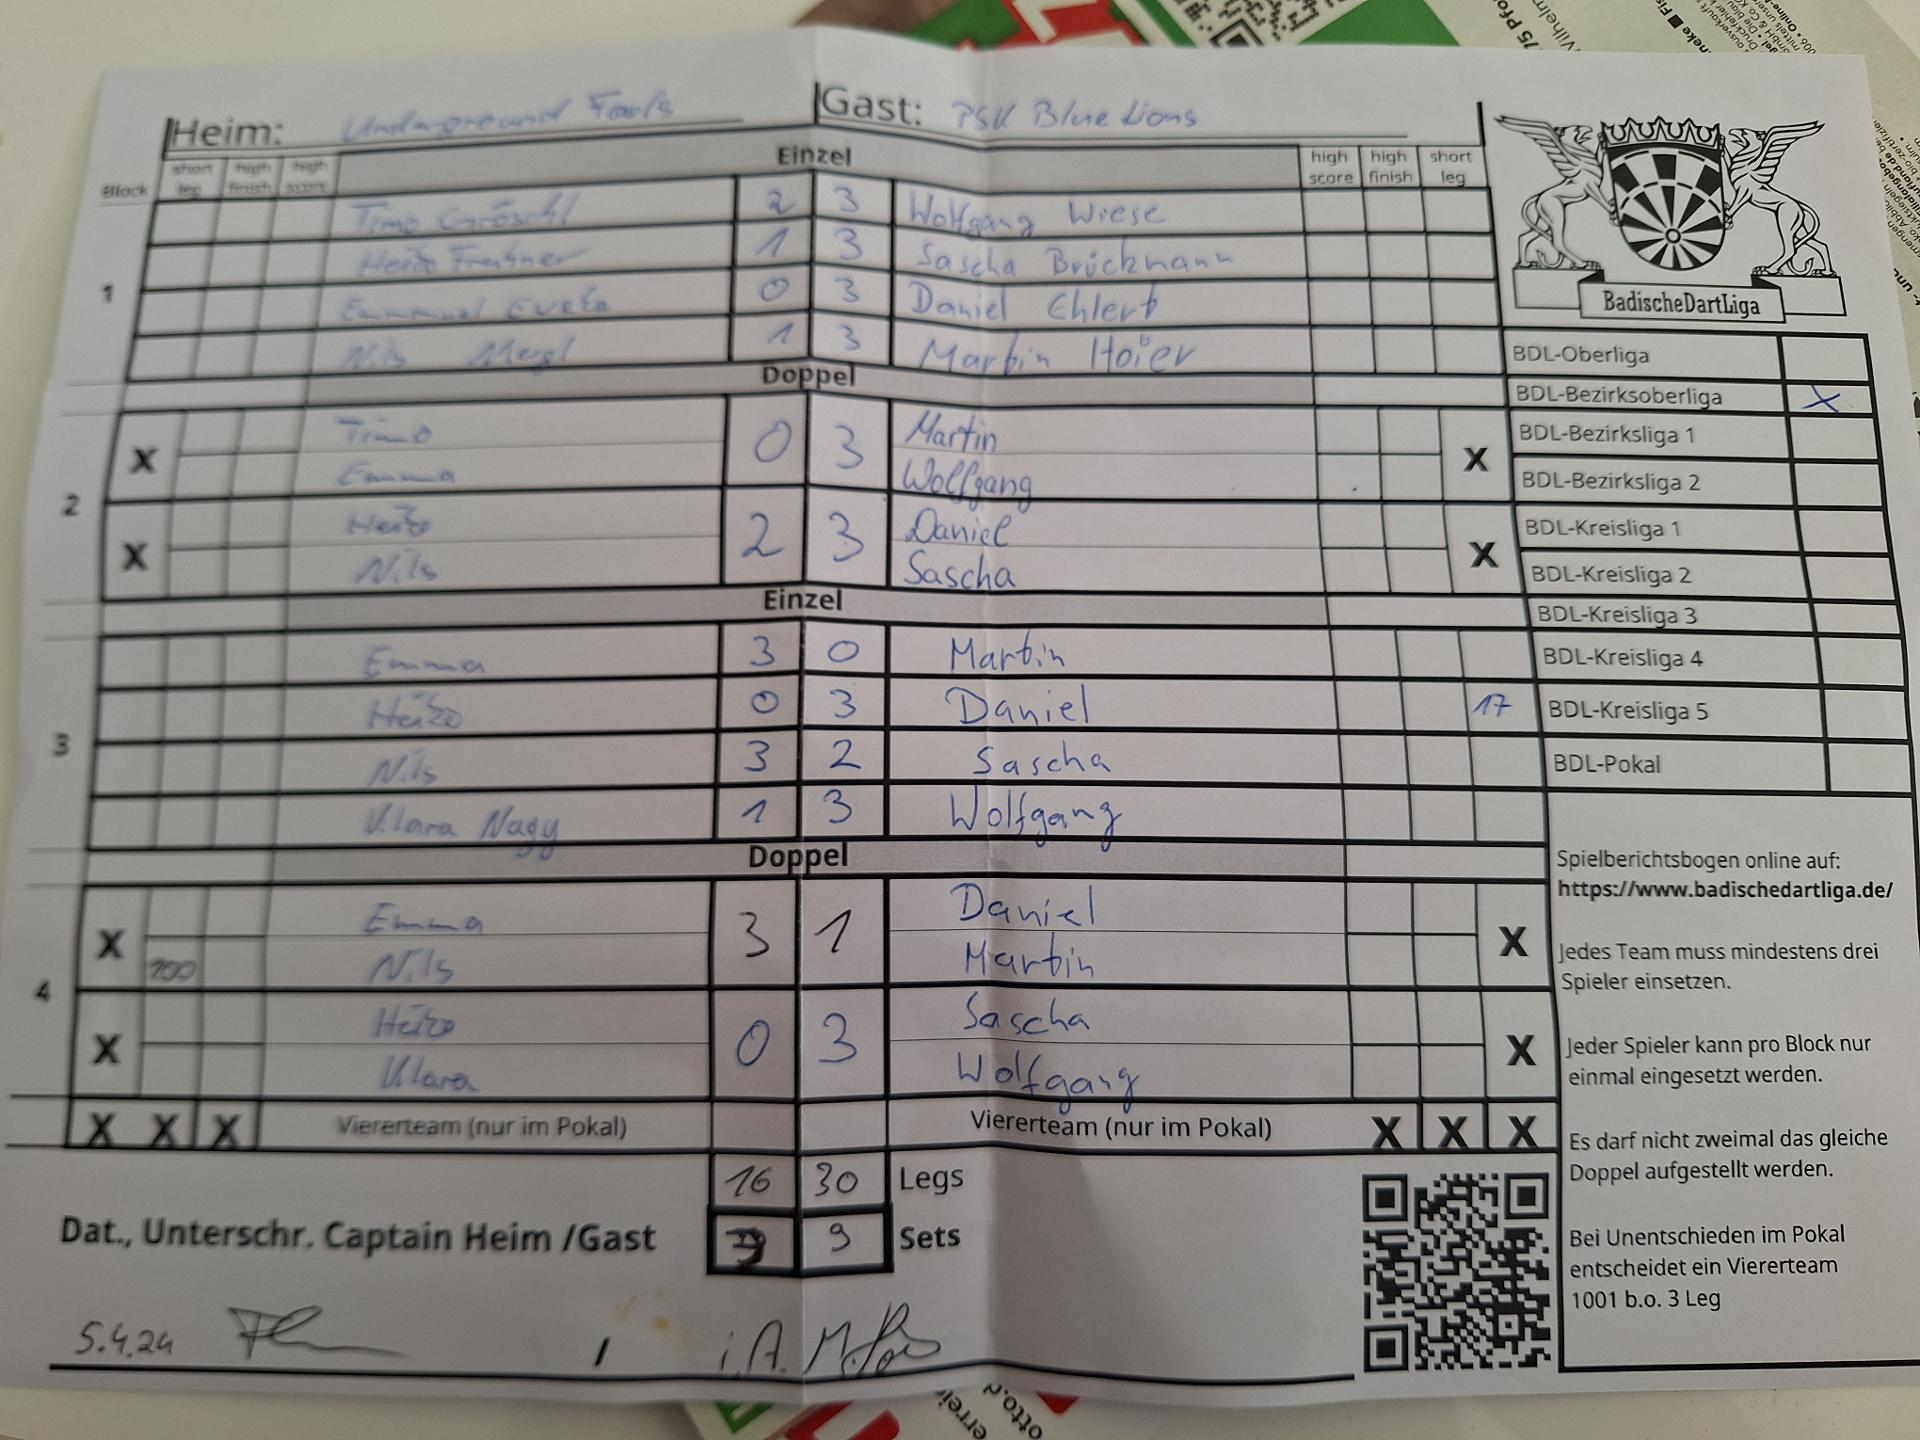 Heim: Underground Gast: PSK Blue Lions
Block short leg high finish high score Einzel high score high finish short leg
1
Timo 2 3 Wolfgang Wiese
Heiko 1 3 Sascha Brückmann
Emmanuel 0 3 Daniel Ehlert
Nils 1 3 Martin Hoier
Doppel
2
X Timo 0 3 Martin X
Emma Wolfgang
X Heiko 2 3 Daniel X
Nils Sascha
Einzel
3
Emma 3 0 Martin
Heiko 0 3 Daniel 17
Nils 3 2 Sascha
Klara Nagy 1 3 Wolfgang
Doppel
4
X Emma 3 1 Daniel X
100 Nils Martin
X Heiko 0 3 Sascha X
Klara Wolfgang
X X X Viererteam (nur im Pokal) Viererteam (nur im Pokal) X X X
16 30 Legs
9 Sets
Dat., Unterschr. Captain Heim /Gast
5.4.24 / i.A.
BadischeDartLiga
BDL-Oberliga
BDL-Bezirksoberliga X
BDL-Bezirksliga 1
BDL-Bezirksliga 2
BDL-Kreisliga 1
BDL-Kreisliga 2
BDL-Kreisliga 3
BDL-Kreisliga 4
BDL-Kreisliga 5
BDL-Pokal
Spielberichtsbogen online auf:
https://www.badischedartliga.de/
Jedes Team muss mindestens drei
Spieler einsetzen.
Jeder Spieler kann pro Block nur
einmal eingesetzt werden.
Es darf nicht zweimal das gleiche
Doppel aufgestellt werden.
Bei Unentschieden im Pokal
entscheidet ein Viererteam
1001 b.o. 3 Leg